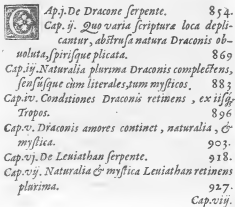 CAp.j. De Dracone serpente. 854.
Cap. ij. Quo varia scripturæ loca deplicantur, abstrusa natura Draconis obuoluta, spirisque plicata. 869
Cap. iij. Naturalia plurima Draconis complectens, sensúsque cùm literales, tum mysticos. 883
Cap. iv. Conditiones Draconis retinens, ex iisq; Tropos. 896
Cap. v. Draconis amores continet, naturalia, & mystica. 903.
Cap. vj. De Leuiathan serpente. 918.
Cap. vij. Naturalia & mystica Leuiathan retinens plurima. 927.
Cap. viij.